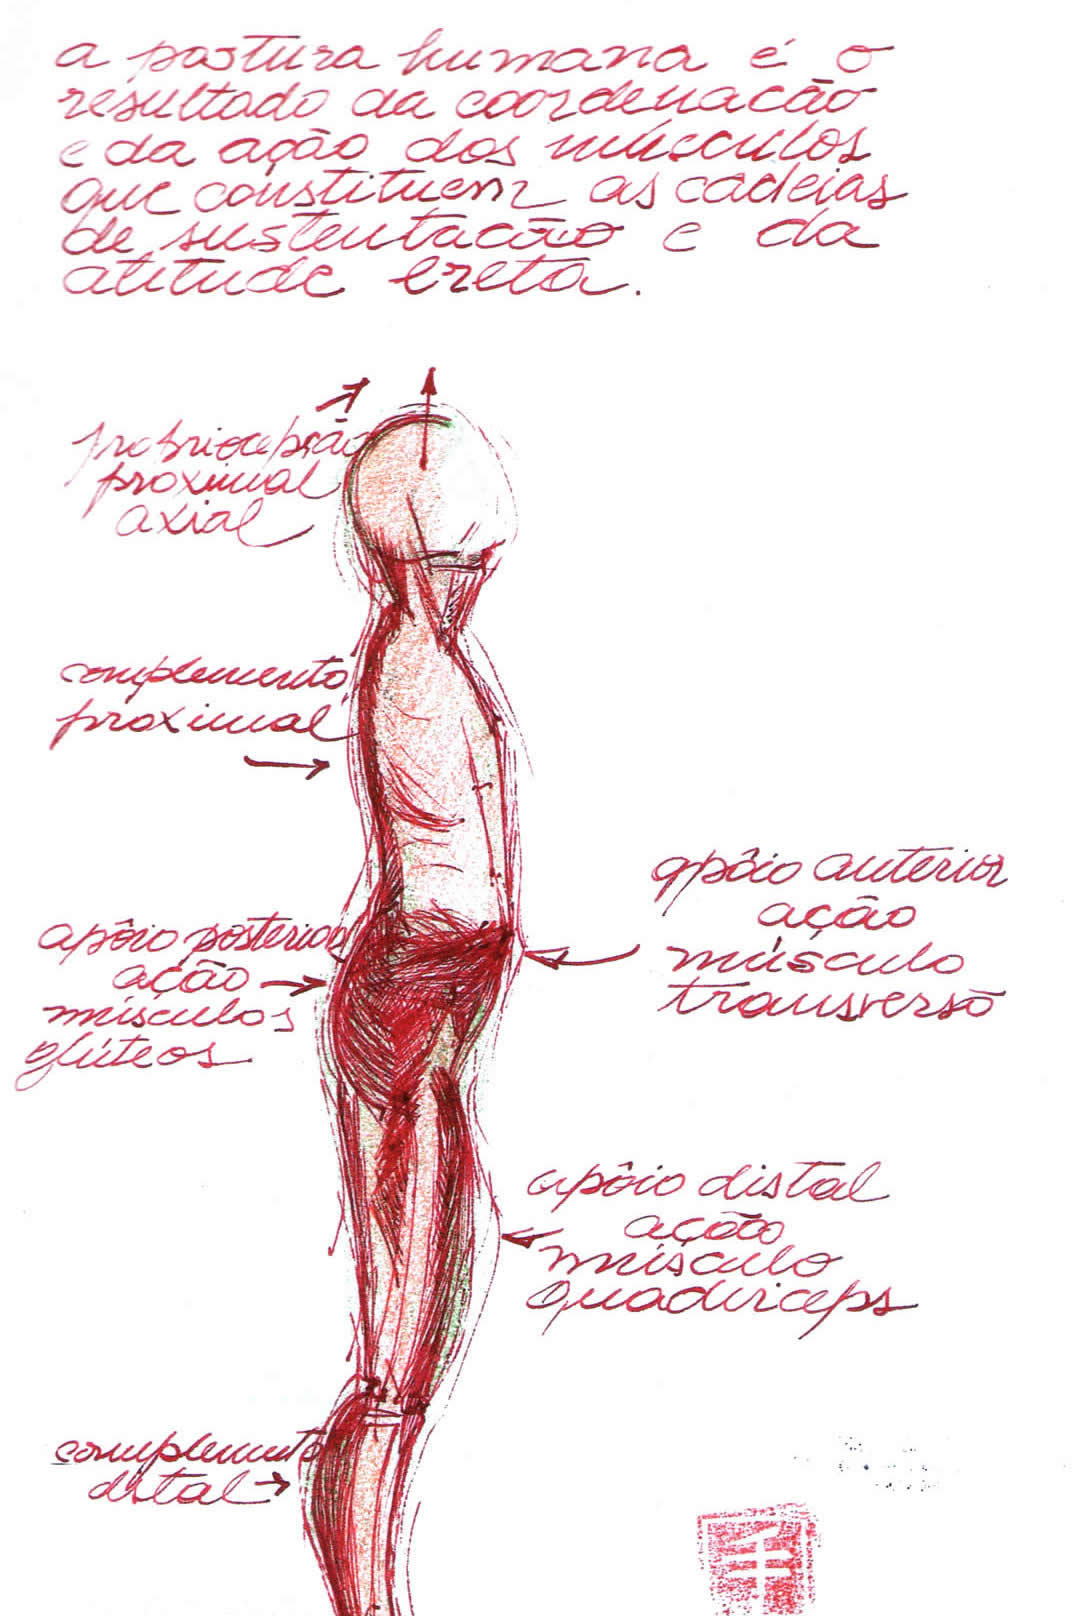 a postura humana é o
resultado da coordenação
e da ação dos músculos
que constituem as cadeias
de sustentação e da
atitude ereta.
propriocepção
proximal
axial
complemento
proximal
apôio anterior
ação
músculo
transverso
apôio posterior
ação
músculos
glúteos
apôio distal
ação
músculo
quadriceps
complemento
distal